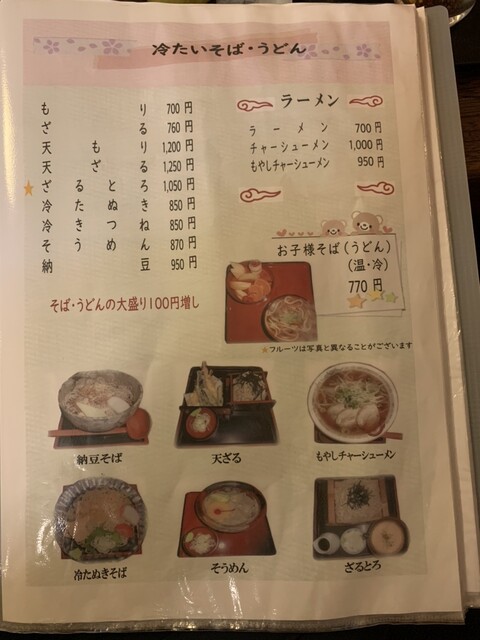 冷たいそば・うどん
もり 700円
ざる 760円
天もり 1,200円
天ざる 1,250円
ざるとろ 1,050円
冷たぬき 850円
冷きつね 850円
そうめん 870円
納豆 950円
そば・うどんの大盛り100円増し
ラーメン
ラーメン 700円
チャーシューメン 1,000円
もやしチャーシューメン 950円
お子様そば(うどん)
(温・冷)
770円
★フルーツは写真と異なることがございます
納豆そば
天ざる
もやしチャーシューメン
冷たぬきそば
そうめん
ざるとろ